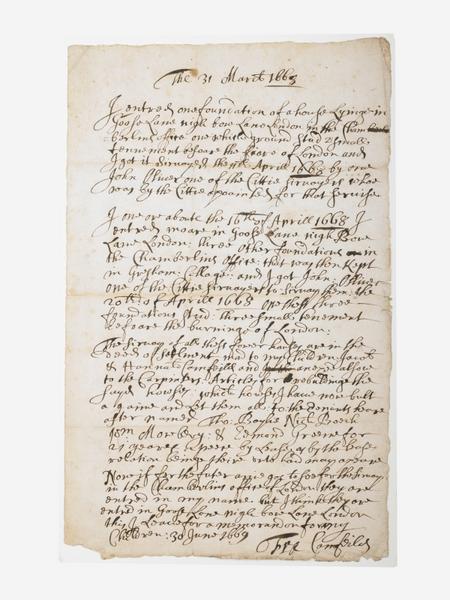 The 31 March 1668
I entred one foundation of a house Lyinge in
Goose Lane nigh bow Lane London in the Chamber
berlins office one which ground stud a small
tennement before the feare of London and
I got it survayed the Aprill 1668 by one
John Oliver one of the Cittie Survayers whoe
was by the Cittie appointed for that servise
I one or about the 16th of Aprill 1668 I
entred moare in Goose Lane nigh Bow
Lane London: three other foundations in
the Chamberlins office: that was then kept
in Gresham Collage: and I got John Oliver
one of the Cittie Survayers to survay them: the
20th: of Aprill 1668 one thess three
foundations stud: three small tenement
before the burninge of London:
The survay of all thess fower houses are in the
deed of setlment mad to my Children Jacob
& Hannah Comfeild and anexed allsoe
to the Carpenters Articls for rebuildinge the
sayd houses which houses I have now bult
againe and let them all to the tenants heare
after named Tho: Boylse Nich Beech
Wm Morbery: & Edmond Greene for
21 yeares apeece by Leases as by the leases
relation beinge there unto had may apeare
Now if for the futer any to see for the survay
in the Chamberlins office of London they are
entred in my name but I thinke they are
entred in Goose Lane nigh bow Lane London
this I Leave for a memorandom for my
Children: 30 June 1669
Comfeild